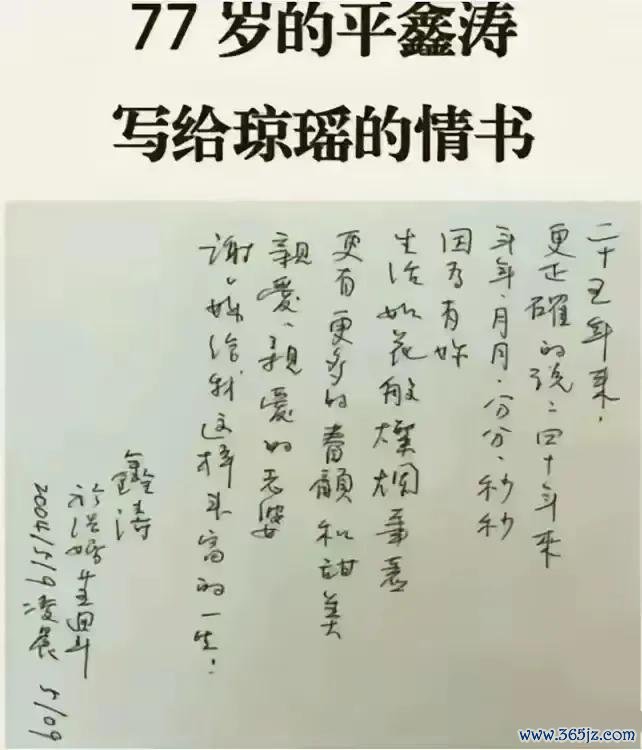 77 岁的平鑫涛
写给琼瑶的情书
二十五年来，
更正確的说：四十年来
年年、月月、分分、秒秒
因为有妳
生活如花般燦爛華麗
更有更多的和甜美
親愛、親愛的老婆
谢谢妳给我这样丰富的一生！
鑫涛
於结婚廿五週年
2004/5/9 凌晨 5/09
www.365jz.com